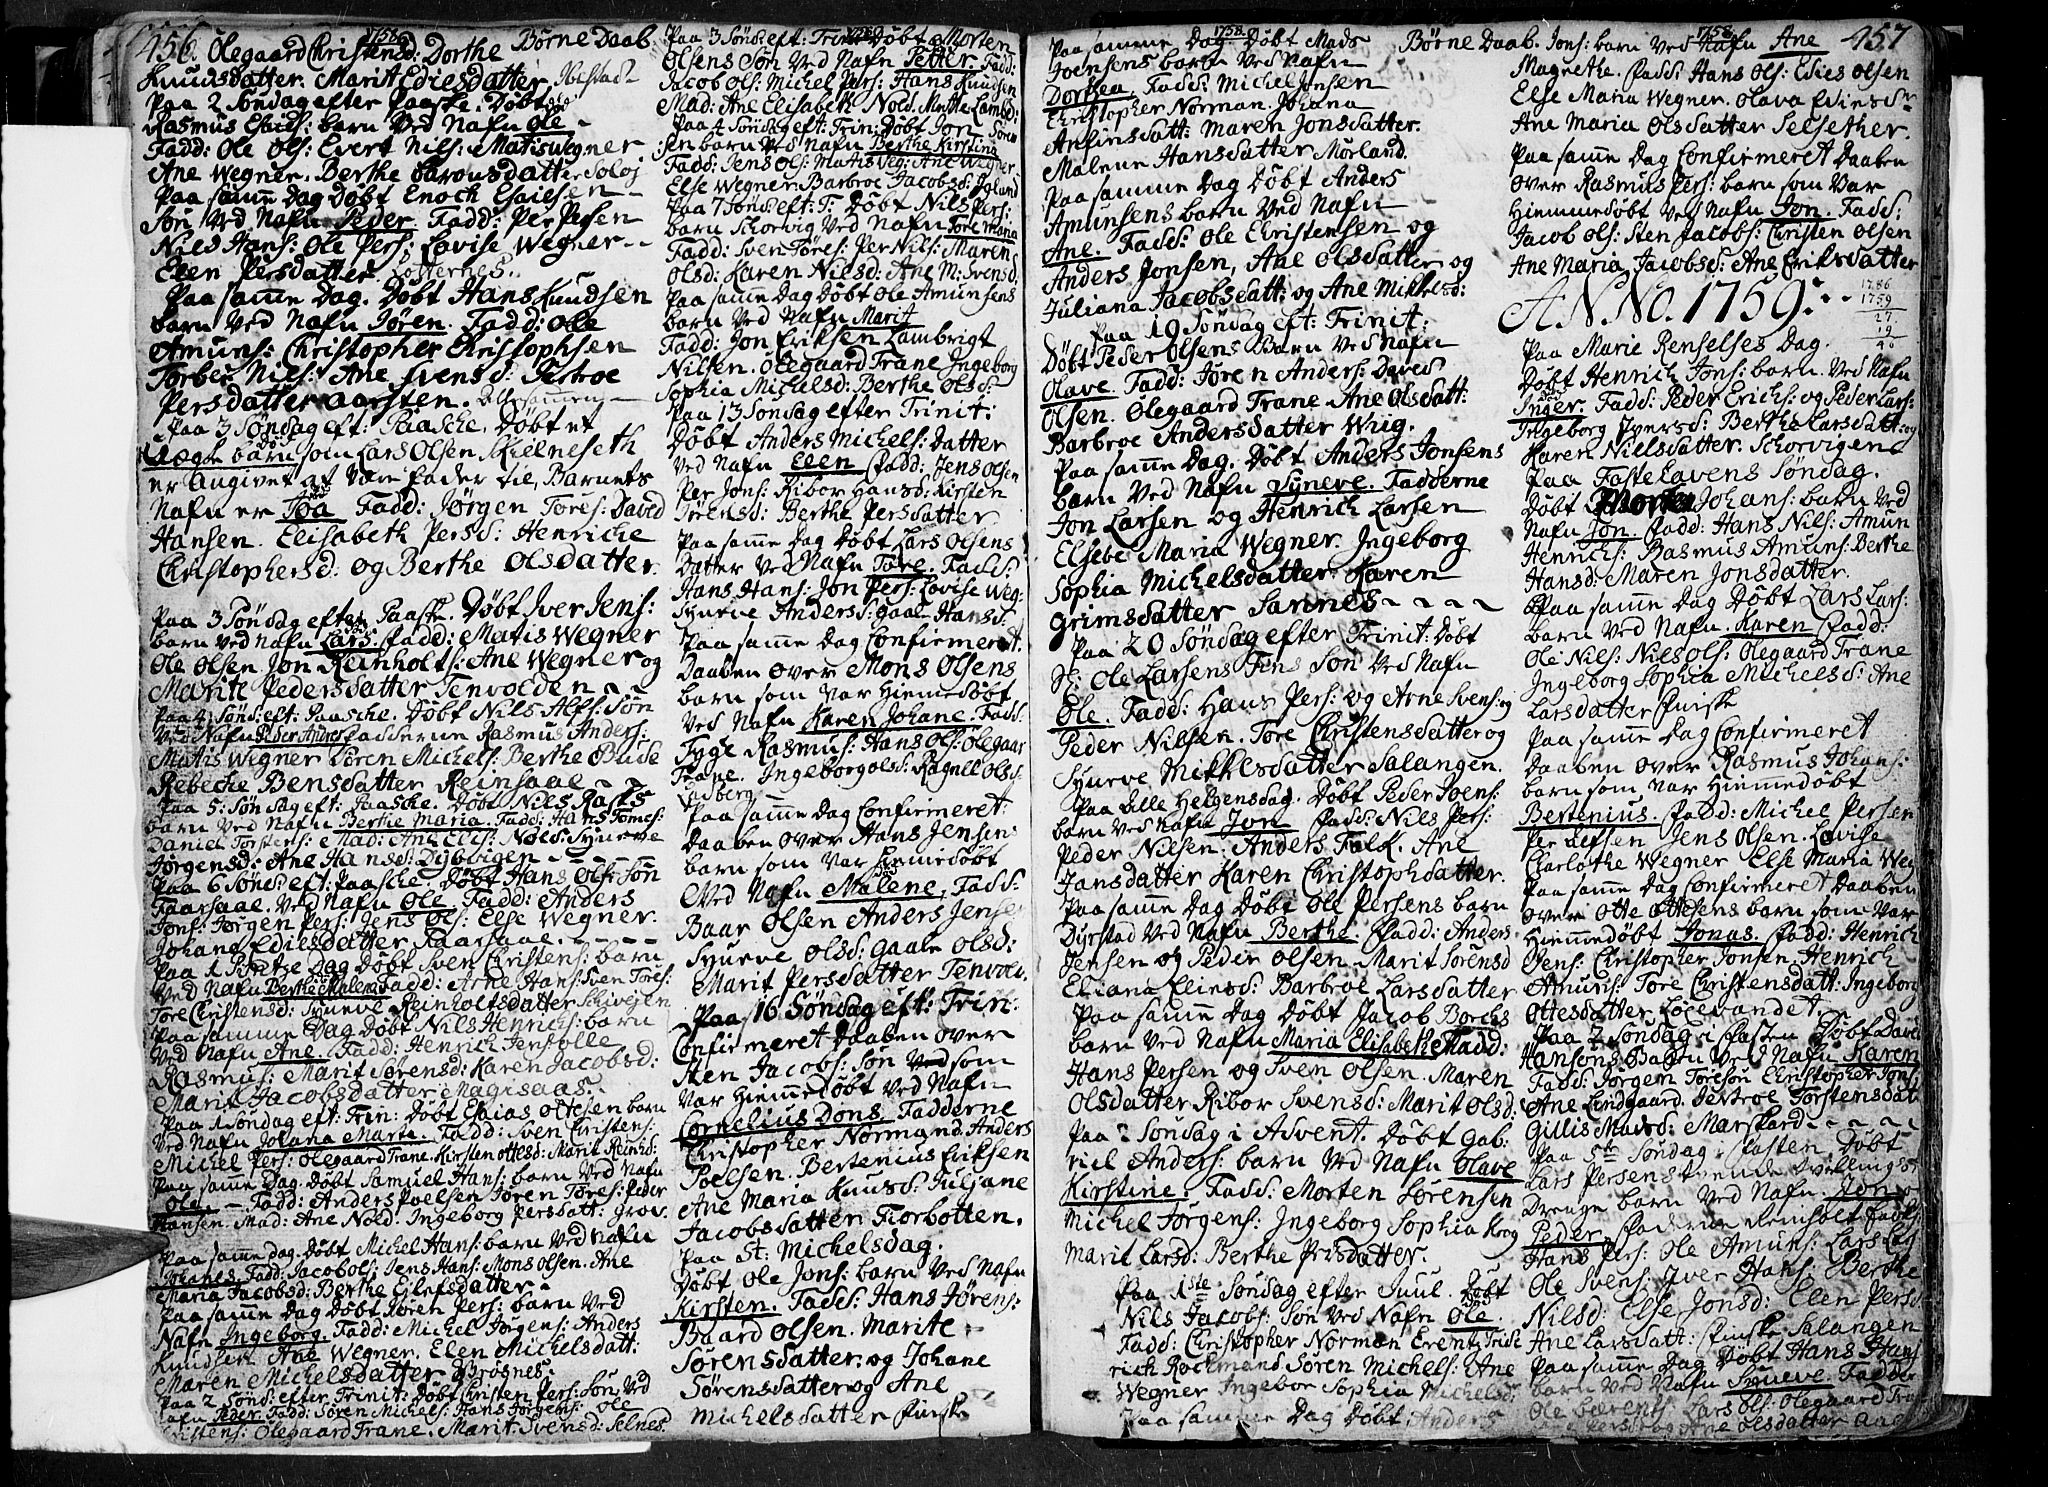 456. 1758.
Olegaard Christensd: Dorthe Børne Daab
Knuds datter. Marit Ediesdatter Ibestad
Paa 2 Søndag efter Paaske. Døbt
Rasmus Esaiæs: barn Ved Nafn Ole
Fadd: Ole Ols: Evert Nils: Matis Wegner
Ane Wegner. Berthe barousdatter Soløj
Paa samme Dag Døbt Enoch Esaiesen
Søn Ved Nafn Peder. Fadd: Per Persen
Nils Hans: Ole Pers: Lovise Wegner
Elen Persdatter
Paa samme Dag. Døbt Hans Knudsen
barn Ved Nafn Søren. Fadd: Ole
Amuns: Christopher Christophsen
Torber Niels: Ane Svensd:
Persdatter Aarsten.
Paa 3 Søndag eft: Paasche. Døbt et
Uægte barn som Lars Olsen Skielneseth
er Angivet at Være fader til, Barnets
Nafn er Fadd: Jørgen Tores: David
Hansen. Elisabeth Persd: Henriche
Christophersd: og Berthe Olsdatter.
Paa 3 Søndag efter Paaske. Døbt Iver Jens:
barn Ved Nafn Lars Fadd: Matis Wegner
Ole Olsen Jon Reinholts: Ane Wegner og
Marite Pedersdatter Tenvolden
Paa 4 Sønd: eft: Paasche. Døbt Nils Alfs: Søn
Ved Nafn Peder Andreas fadderne Rasmus Anders:
Matis Wegner Søren Michels: Berthe Bude
Rebeche Bensdatter Reinsaae
Paa 5: Søndag eft: Paasche. Døbt Nils Rasks
barn Ved Nafn Berthe Maria. Fadd: Hans Tomes:
Daniel Torstens: Mad: Ane Elis: Nold: Syneve
Jørgensd: Ane Hansd: Dybvigen
Paa 6 Sønd: eft: Paasche. Døbt Hans Ols: Søn
Faarsaae. Ved Nafn Ole. Fadd: Anders
Jons: Jørgen Pers: Jens Ols: Else Wegner.
Johane Ediesdatter Faarsaae.
Paa 1 Pintze Dag Døbt Sven Christens: barn
Ved Nafn Berthe Malena Fadd: Arne Hans: Sven Tores:
Tore Christensd: Syneve Reinholtsdatter
Paa samme Dag Døbt Nils Henrichs: barn
Ved Nafn Ane. Fadd: Henrich Jens: Olle
Rasmus: Marit Sørensd: Karen Jacobsd:
Marit Jacobsdatter Magisaas.
Paa 1 Søndag eft: Trin: Døbt Esaias Ottesen barn
Ved Nafn Johana Marte. Fadd: Sven Christens:
Michel Pers: Olegaard Trane. Kirsten Ottesd: Marit Reinhd:
Paa samme Dag. Døbt Samuel Hans: barn Ved Nafn
Ole. Fadd: Anders Poelsen Søren Tores: Peder
Hansen. Mad: Ane Nold. Ingeborg Persdatt: Grov.
Paa samme dag. Døbt Michel Hans: barn Ved Nafn
Johanes. Fadd: Jacob Ols: Jens Hans: Mons Olsen. Ane
Maria Jacobsd: Berthe Eilefsdatter
Paa samme Dag Døbt Søren Pers: barn Ved
Nafn Ingeborg. Fadd: Michel Jørgens: Anders
Knudsen Ane Wegner. Elen Michelsdatt:
Maren Michelsdatter Brøgnes
Paa 2 Sønd: efter Trinit: Døbt Christen Pers: Søn Ved
Nafn Peder Fadd: Søren Michels: Hans Jørgens: Ole
Christens: Olegaard Trane. Marit Svensd: Selnes
1758.
Paa 3 Sønd: eft: Trin: Døbt Morten
Olsens Søn Ved Nafn Petter. Fadd:
Jacob Ols: Michel Pers: Hans Knudsen
Mad: Ane Elisabeth Nold. Marthe Lambd:
Paa 4 Søndag eft: Trin: Døbt Jon Søren
:sen barn Ved Nafn Berthe Kirstina
Fadd: Jens Ols: Matis Weg: Ane Wegner
Else Wegner. Barbroe Jacobsd: Igland
Paa 7 Sønd: eft: T: Døbt Nils Pers:
barn Schorvig Ved Nafn Tore Maria
Fadd: Sven Tores: Per Nils: Maren
Olsd: Karen Nilsd: Ane M: Svensd:
Paa samme Dag Døbt Ole Amunsens
barn Ved Nafn Marit
Fadd: Jon Eriksen Lambrigt
Nilsen. Olegaard Trane Ingeborg
Sophia Michelsd: Berthe Olsd:
Paa 13 Søndag efter Trinit:
Døbt Anders Michels: Datter
Ved Nafn Elen Fadd: Jens Olsen
Per Jons: Ribor Hansd: Kirsten
Sørensd: Berthe Persdatter
Paa samme Dag Døbt Lars Olsens
Datter Ved Nafn Tore. Fadd:
Hans Hans: Jon Pers: Lovise Weg:
Syneve Andersd: Gaae Hansd:
Paa samme Dag Confirmeret
Daaben over Mons Olsens
barn som Var Hiemmedøbt
Ved Nafn Karen Johane. Fadd:
Tyge Rasmus: Hans Ols: Olegaar
Trane. Ingeborg Olsd: Ragnil Olsd:
Ladberg
Paa samme Dag Confirmeret
Daaben over Hans Jensens
barn som Var Hiemmedøbt
Ved Nafn Malene, Fadd:
Baar Olsen Anders Jensen
Syneve Olsd: Gaale Olsd:
Marit Persdatter Tenvold.
Paa 16 Søndag eft: Trin:
Confirmeret Daaben over
Sten Jacobs: Søn Ved som
Var Hiemmedøbt Ved Nafn
Cornelius Dons. Fadderne
Christopher Normand. Anders
Poelsen. Bertenius Eriksen
Ane Maria Knudsd: Juliane
Jacobsdatter Fiorbotten.
Paa St: Michelsdag.
Døbt Ole Jons: barn Ved Nafn
Kirsten. Fadd: Hans Sørens:
Baard Olsen. Marite
Sørensdatter. og Johane
Sørensdatter og Ane
Michelsdatter
1758.
Paa samme Dag Døbt Mads Børne Daab.
Joensens barn Ved Nafn
Dorthea. Fadd: Michel Jensen
Christopher Norman. Johana
Anfinsdatt: Maren Jonsdatter.
Malene Hansdatter Mørland.
Paa samme Dag Døbt Anders
Amunsens barn Ved Nafn
Ane. Fadd: Ole Christensen og
Anders Jonsen, Ane Olsdatter og
Juliana Jacobsdatt: og Ane Mikkelsd:
Paa 19 Søndag eft: Trinit:
Døbt Peder Olsens Barn Ved Nafn
Olave. Fadd: Søren Anders: David
Olsen. Olegaard Trane Ane Olsdatt:
Barbroe Andersdatter Wiig.
Paa samme Dag. Døbt Anders Jonsens
barn Ved Nafn Syneve. Fadderne
Jon Larsen og Henrich Larsen
Elsebe Maria Wegner. Ingeborg
Sophia Michelsdatter. Karen
Grimsdatter Sannes
Paa 20 Søndag efter Trinit: Døbt
Ole Larsens Fins Søn Ved Nafn
Ole. Fadd: Hans Pers: og Arne Svens: og
Peder Nilsen. Tore Christensdatter og
Syneve Mikkelsdatter Salangen.
Paa Alle Helgensdag. Døbt Peder Svens:
barn Ved Nafn Jon Fadd: Nils Pers:
Peder Nilsen. Anders Falk. Ane
Jansdatter Karen Christophsdatter.
Paa samme Dag Døbt Ole Persens barn
Dyrstad Ved Nafn Berthe. Fadd: Anders
Jensen og Peder Olsen Marit Sørensd
Eliana Eliesd: Barbroe Larsdatter
Paa samme Dag Døbt Jacob Borchs
barn Ved Nafn Maria Elisabeth Fadd:
Hans Persen og Sven Olsen. Maren
Olsdatter Ribor Svensd: Marit Olsd:
Paa Søndag i Advent. Døbt Gab:
riel Anders: barn Ved Nafn Olave
Kirstine. Fadd: Morten Sørensen
Michel Jørgens: Ingeborg Sophia Krog
Marit Larsd: Berthe Prisdatter.
Paa 1ste Søndag efter Juul. Døbt
Nils Jacobs: Søn Ved Nafn Ole.
Fadd: Christopher Norman Event Fride
rich Rochmand Søren Michels: Ane
Wegner Ingebor Sophia Michelsd:
Paa samme Dag Døbt Anders
1758. 457
Jons: barn Ved Nafn Ane
Magrethe. Fadd: Hans Ols: Edies Olsen
Else Maria Wegner. Olava
Ane Maria Olsdatter Selsether.
Paa samme Dag Confirmeret Daaben
over Rasmus Pers: barn som Var
Hiemmedøbt Ved Nafn Jon. Fadd:
Jacob Ols: Sten Jacobs: Christen Olsen
Ane Maria Jacobsd: Ane Eriksdatter
ANNO. 1759.
1786
1759
27
19
46
Paa Marie Renselses Dag.
Døbt Henrich Jons: barn. Ved Nafn
Inger. Fadd: Peder Erichs: og Peder Lars:
Ingeborg Iversd: Berthe Larsdatt: og
Karen Nielsdatter. Schorvigen
Paa Fastelavens Søndag.
Døbt Morten Johans: barn Ved
Nafn Jon Fadd: Hans Nils: Amun
Henrichs: Rasmus Amuns: Berthe
Hansd: Maren Jonsdatter.
Paa samme Dag Døbt Lars Lars:
barn Ved Nafn. Karen Fadd:
Ole Nils: Nils Ols: Olegaard Trane
Ingeborg Sophia Michelsd: Ane
Larsdatter
Paa samme Dag Confirmeret
Daaben over Rasmus Johans:
barn som Var Hiemmedøbt
Bertenius. Fadd: Michel Persen
Per Jens Olsen. Lovise
Charlothe Wegner Else Maria Weg
Paa samme Dag Confirmeret Daaben
over Otte Ottesens barn som Var
Hiemmedøbt Jonas. Fadd: Henrich
Jens: Christopher Jonsen. Henrich
Amuns: Tore Christensdatt: Ingeborg
Ottesdatter, Løcevandet.
Paa 2 Søndag i Fasten Døbt David
Hansøns Barn Ved Nafn Karen
Fadd: Jørgem Toresøn Christopher Jons:
Ane Lindgaard. Jertroe Torstensdat
Gillis Madsd: Marskard
Paa 5te Søndag i Fasten. Døbt
Lars Persens tvende tvillinger
Drenge barn Ved Nafn Jon og
Peder. Faderne Reinholt
Hans Pers: Ole Amuns: Lars
Ole Svens: Iver Hans: Berthe
Nilsd: Else Jonsd: Elen Persd:
Ane Larsdatt: Salangen
Paa samme Dag Døbt Hans Hans
barn Ved Nafn Syneve. Fadder
Ole bærents: Lars Ols: Olegaard Trane
Persd: og Ane Olsdatter